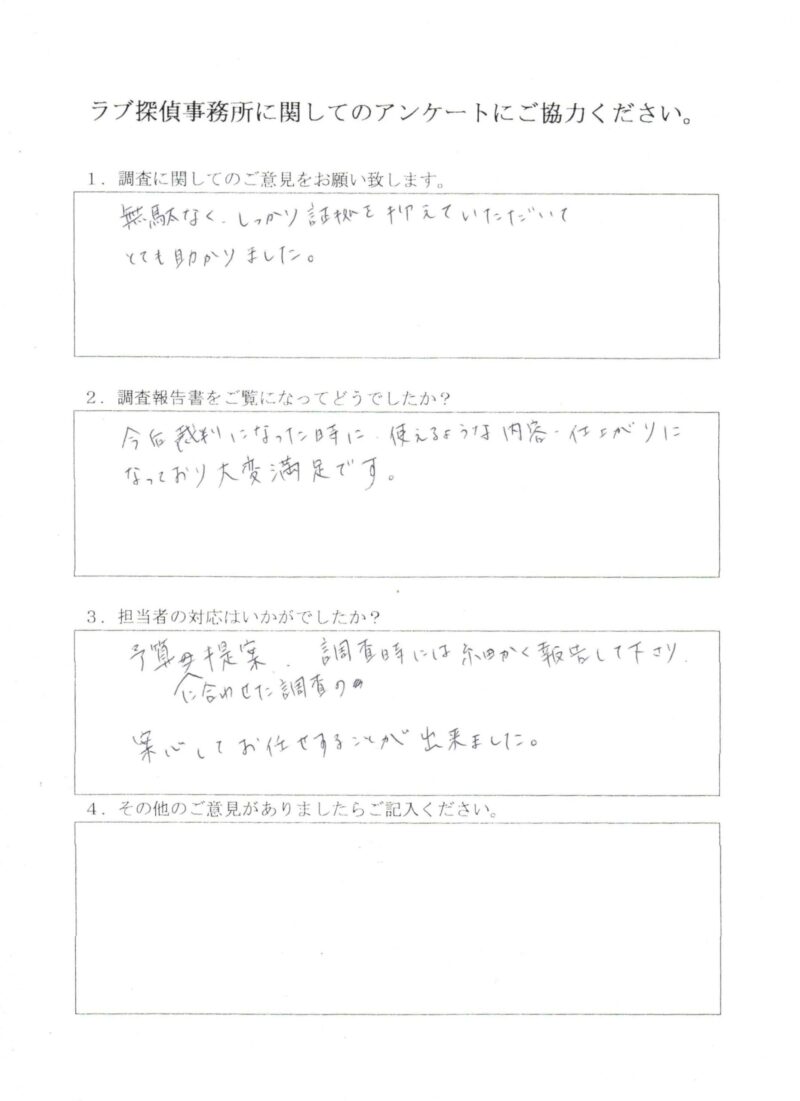 ラブ探偵事務所に関してのアンケートにご協力ください。
1．調査に関してのご意見をお願い致します。
無駄なく、しっかり証拠を抑えていただいて
とても助かりました。
2．調査報告書をご覧になってどうでしたか？
今后裁判になった時に、使えるような内容・仕上がりに
なっており大変満足です。
3．担当者の対応はいかがでしたか？
予算 提案、調査時には細かく報告して下さり、
に合わせた調査の
案心してお任せすることが出来ました。
4．その他のご意見がありましたらご記入ください。